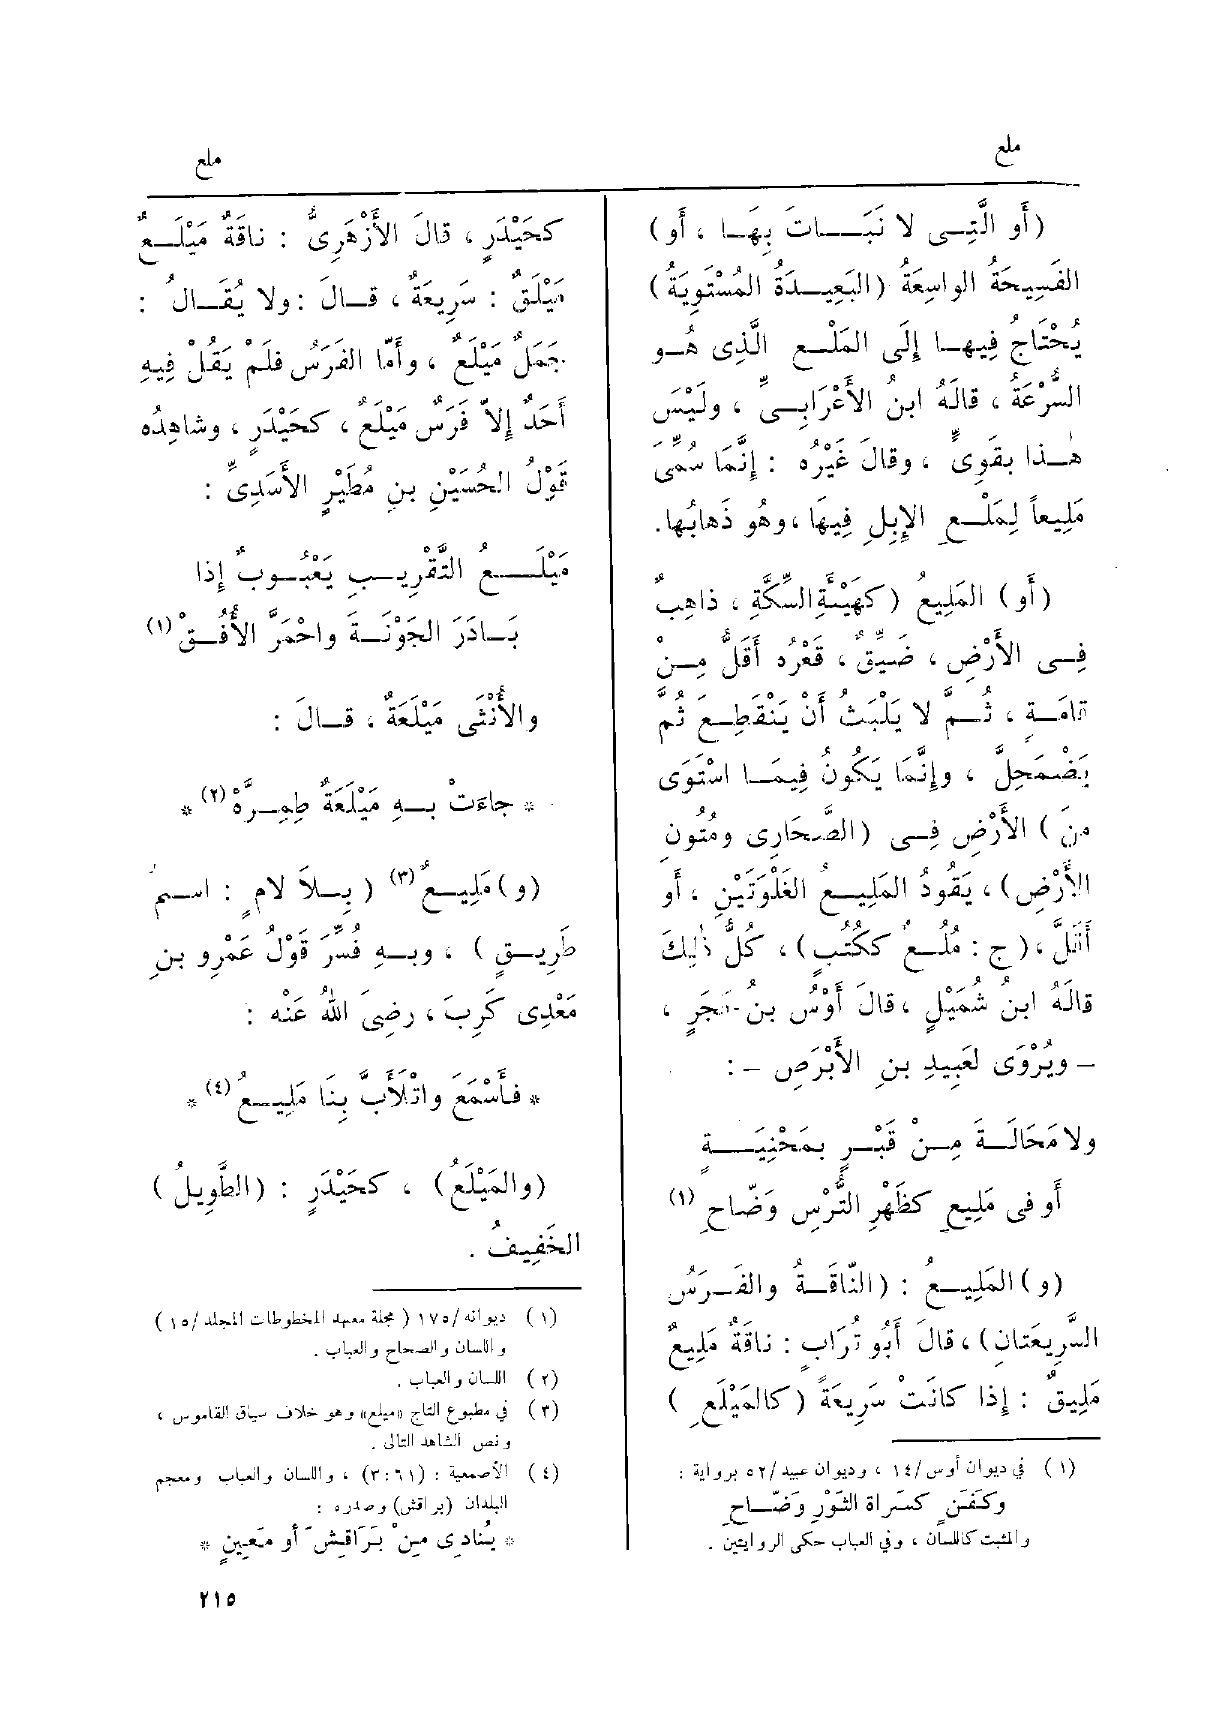 ملع
ملع
(أَو الَّتِى لا نَبَاتَ بِهَا ، أَو)
الفَسِيحَةُ الواسِعَةُ (البَعِيدَةُ المُسْتَوِيَةُ)
يُحْتَاجُ فِيها إِلَى المَلْعِ الَّذِى هُو
السُّرْعَةُ ، قالَهُ ابنُ الأَعْرَابِىِّ ، ولَيْسَ
هٰذا بقَوِىٍّ ، وقالَ غَيْرُه : إِنَّمَا سُمِّىَ
مَلِيعاً لِمَلْعِ الإِبِلِ فِيهَا ، وهُو ذَهابُها.
(أَو) المَلِيعُ (كهَيْئَةِ السِّكَّةِ ، ذاهِبٌ
فِى الأَرْضِ ، ضَيِّقٌ ، قَعْرُه أَقَلُّ مِنْ
قامَةٍ ، ثُمَّ لا يَلْبَثُ أَنْ يَنْقَطِعَ ثُمَّ
يَضْمَحِلَّ ، وإِنَّمَا يَكُونُ فِيمَا اسْتَوَى
منَ) الأَرْضِ فِى (الصَّحَارِى ومُتُونِ
الأَرْضِ) ، يَقُودُ المَلِيعُ الغَلْوَتَيْنِ ، أَو
أَقَلَّ ، (ج : مُلُعٌ ككُتُبٍ) ، كُلُّ ذٰلِكَ
قالَهُ ابنُ شُمَيْلٍ ، قالَ أَوْسُ بنُ حَجَرٍ ،
– ويُرْوَى لعَبِيدِ بنِ الأَبْرَصِ – :
ولا مَحَالَةَ مِنْ قَبْرٍ بمَحْنِيَةٍ
أَو فى مَلِيعٍ كظَهْرِ التُّرْسِ وَضّاحِ (١)
(و) المَلِيعُ : (النّاقَةُ والفَرَسُ
السَّرِيعَتانِ) ، قالَ أَبُو تُرَابٍ : ناقَةٌ مَلِيعٌ
مَلِيقٌ : إِذا كانَتْ سَرِيعَةً (كالمَيْلَعِ)
(١) فى ديوان أوس/١٤ ، وديوان عبيد/٥٢ برواية :
وكَفَنٍ كسَرَاة الثَّوْرِ وَضَّاحِ
والمثبت كاللسان ، وفى العباب حكى الروايتين .
كحَيْدَرٍ ، قالَ الأَزْهَرِىُّ : ناقَةٌ مَيْلَعٌ
مَيْلَقٌ : سَرِيعَةٌ ، قالَ : ولا يُقَالُ :
جَمَلٌ مَيْلَعٌ ، وأَمّا الفَرَسُ فلَمْ يَقُلْ فِيهِ
أَحَدٌ إِلاّ فَرَسٌ مَيْلَعٌ ، كحَيْدَرٍ ، وشاهِدُه
قَوْلُ الحُسَيْنِ بنِ مُطَيْرٍ الأَسَدِىِّ :
مَيْلَعُ التَّقْرِيبِ يَعْبُوبٌ إِذا
بَادَرَ الجَوْنَةَ واحْمَرَّ الأُفُقْ (١)
والأُنْثَى مَيْلَعَةٌ ، قالَ :
* جاءَتْ بهِ مَيْلَعَةٌ طِمِرَّهْ (٢) *
(و) مَلِيعٌ (٣) (بِلاَ لامٍ : اسمُ
طَرِيقٍ) ، وبهِ فُسِّرَ قَوْلُ عَمْرِو بنِ
مَعْدِى كَرِبَ ، رضِىَ اللهُ عَنْه :
* فأَسْمَعَ واتْلأَبَّ بِنَا مَلِيعُ (٤) *
(والمَيْلَعُ) ، كحَيْدَرٍ : (الطَّوِيلُ)
الخَفِيفُ .
(١) ديوانه/١٧٥ (مجلة معهد المخطوطات المجلد/١٥)
واللسان والصحاح والعباب .
(٢) اللسان والعباب .
(٣) فى مطبوع التاج «ميلع» وهو خلاف سياق القاموس ،
ونص الشاهد التالى .
(٤) الأصمعية : (٣:٦١) ، واللسان والعباب ومعجم
البلدان (براقش) وصدره :
* يُنادِى مِنْ بَرَاقِشَ أو مَعِينٍ *
٢١٥